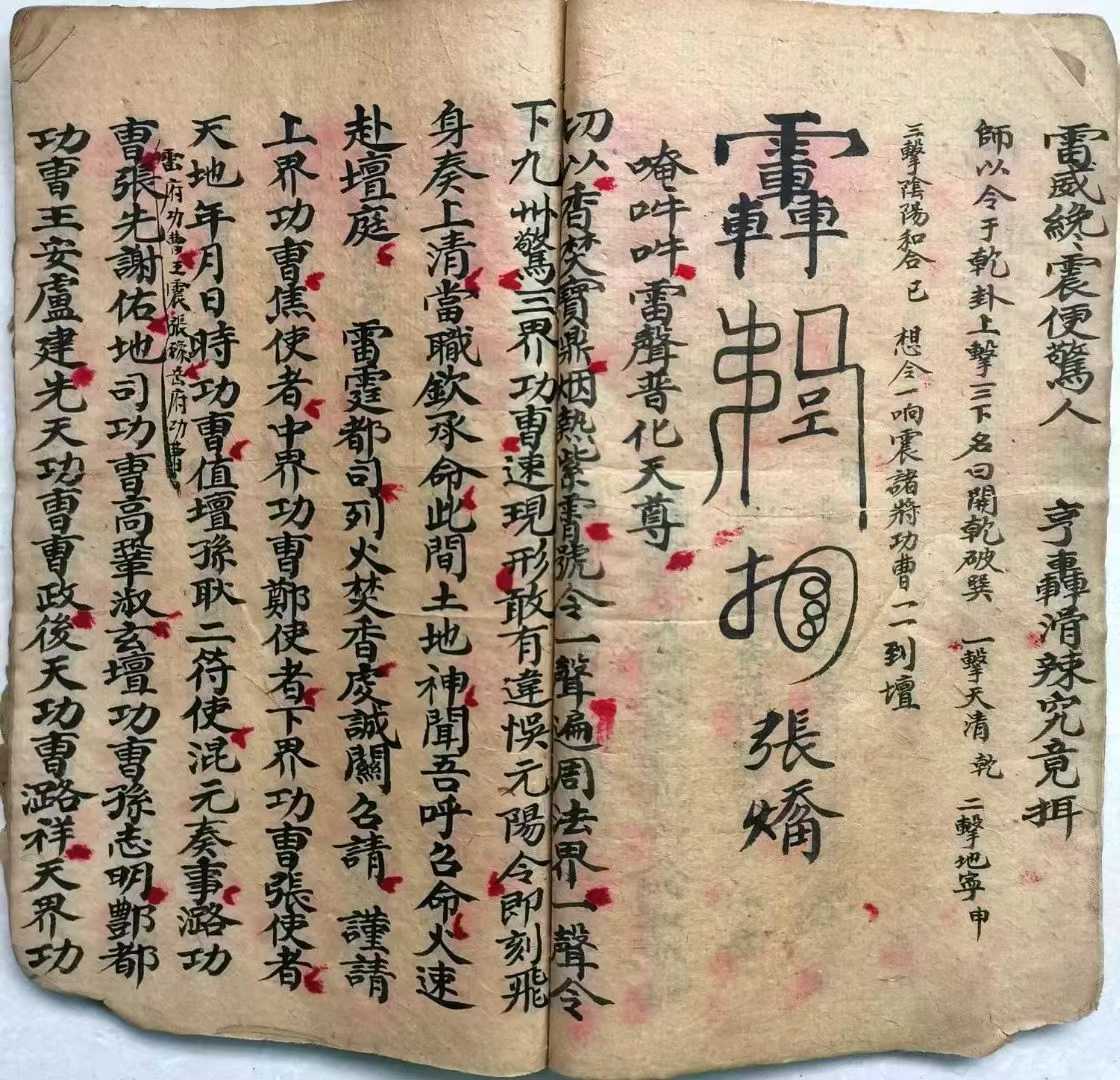 雷威纔震便驚人 亨轟滑辣究竟挕
師以令于乾卦上擊三下名曰開乾破巽 一擊天清 乾 二擊地寧 申
三擊陰陽和合 已 想令一响震諸將功曹一一到壇
張燏
唵吽吽雷聲普化天尊
切以香焚寶鼎烟熱紫霄號令一聲遍周法界一聲令
下九州驚三界功曹速現形敢有違悞元陽令即刻飛
身奏上清當職欽承命此間土地神聞吾呼召命火速
赴壇庭 雷霆都司列火焚香虔誠關召請 謹請
上界功曹焦使者中界功曹鄭使者下界功曹張使者
天地年月日時功曹值壇孫耿二符使混元奏事潞功
雷府功曹王震張 岳府功曹
曹張先謝佑地司功曹高鞏淑玄壇功曹孫志明酆都
功曹王安盧建先天功曹曹政後天功曹潞祥天界功